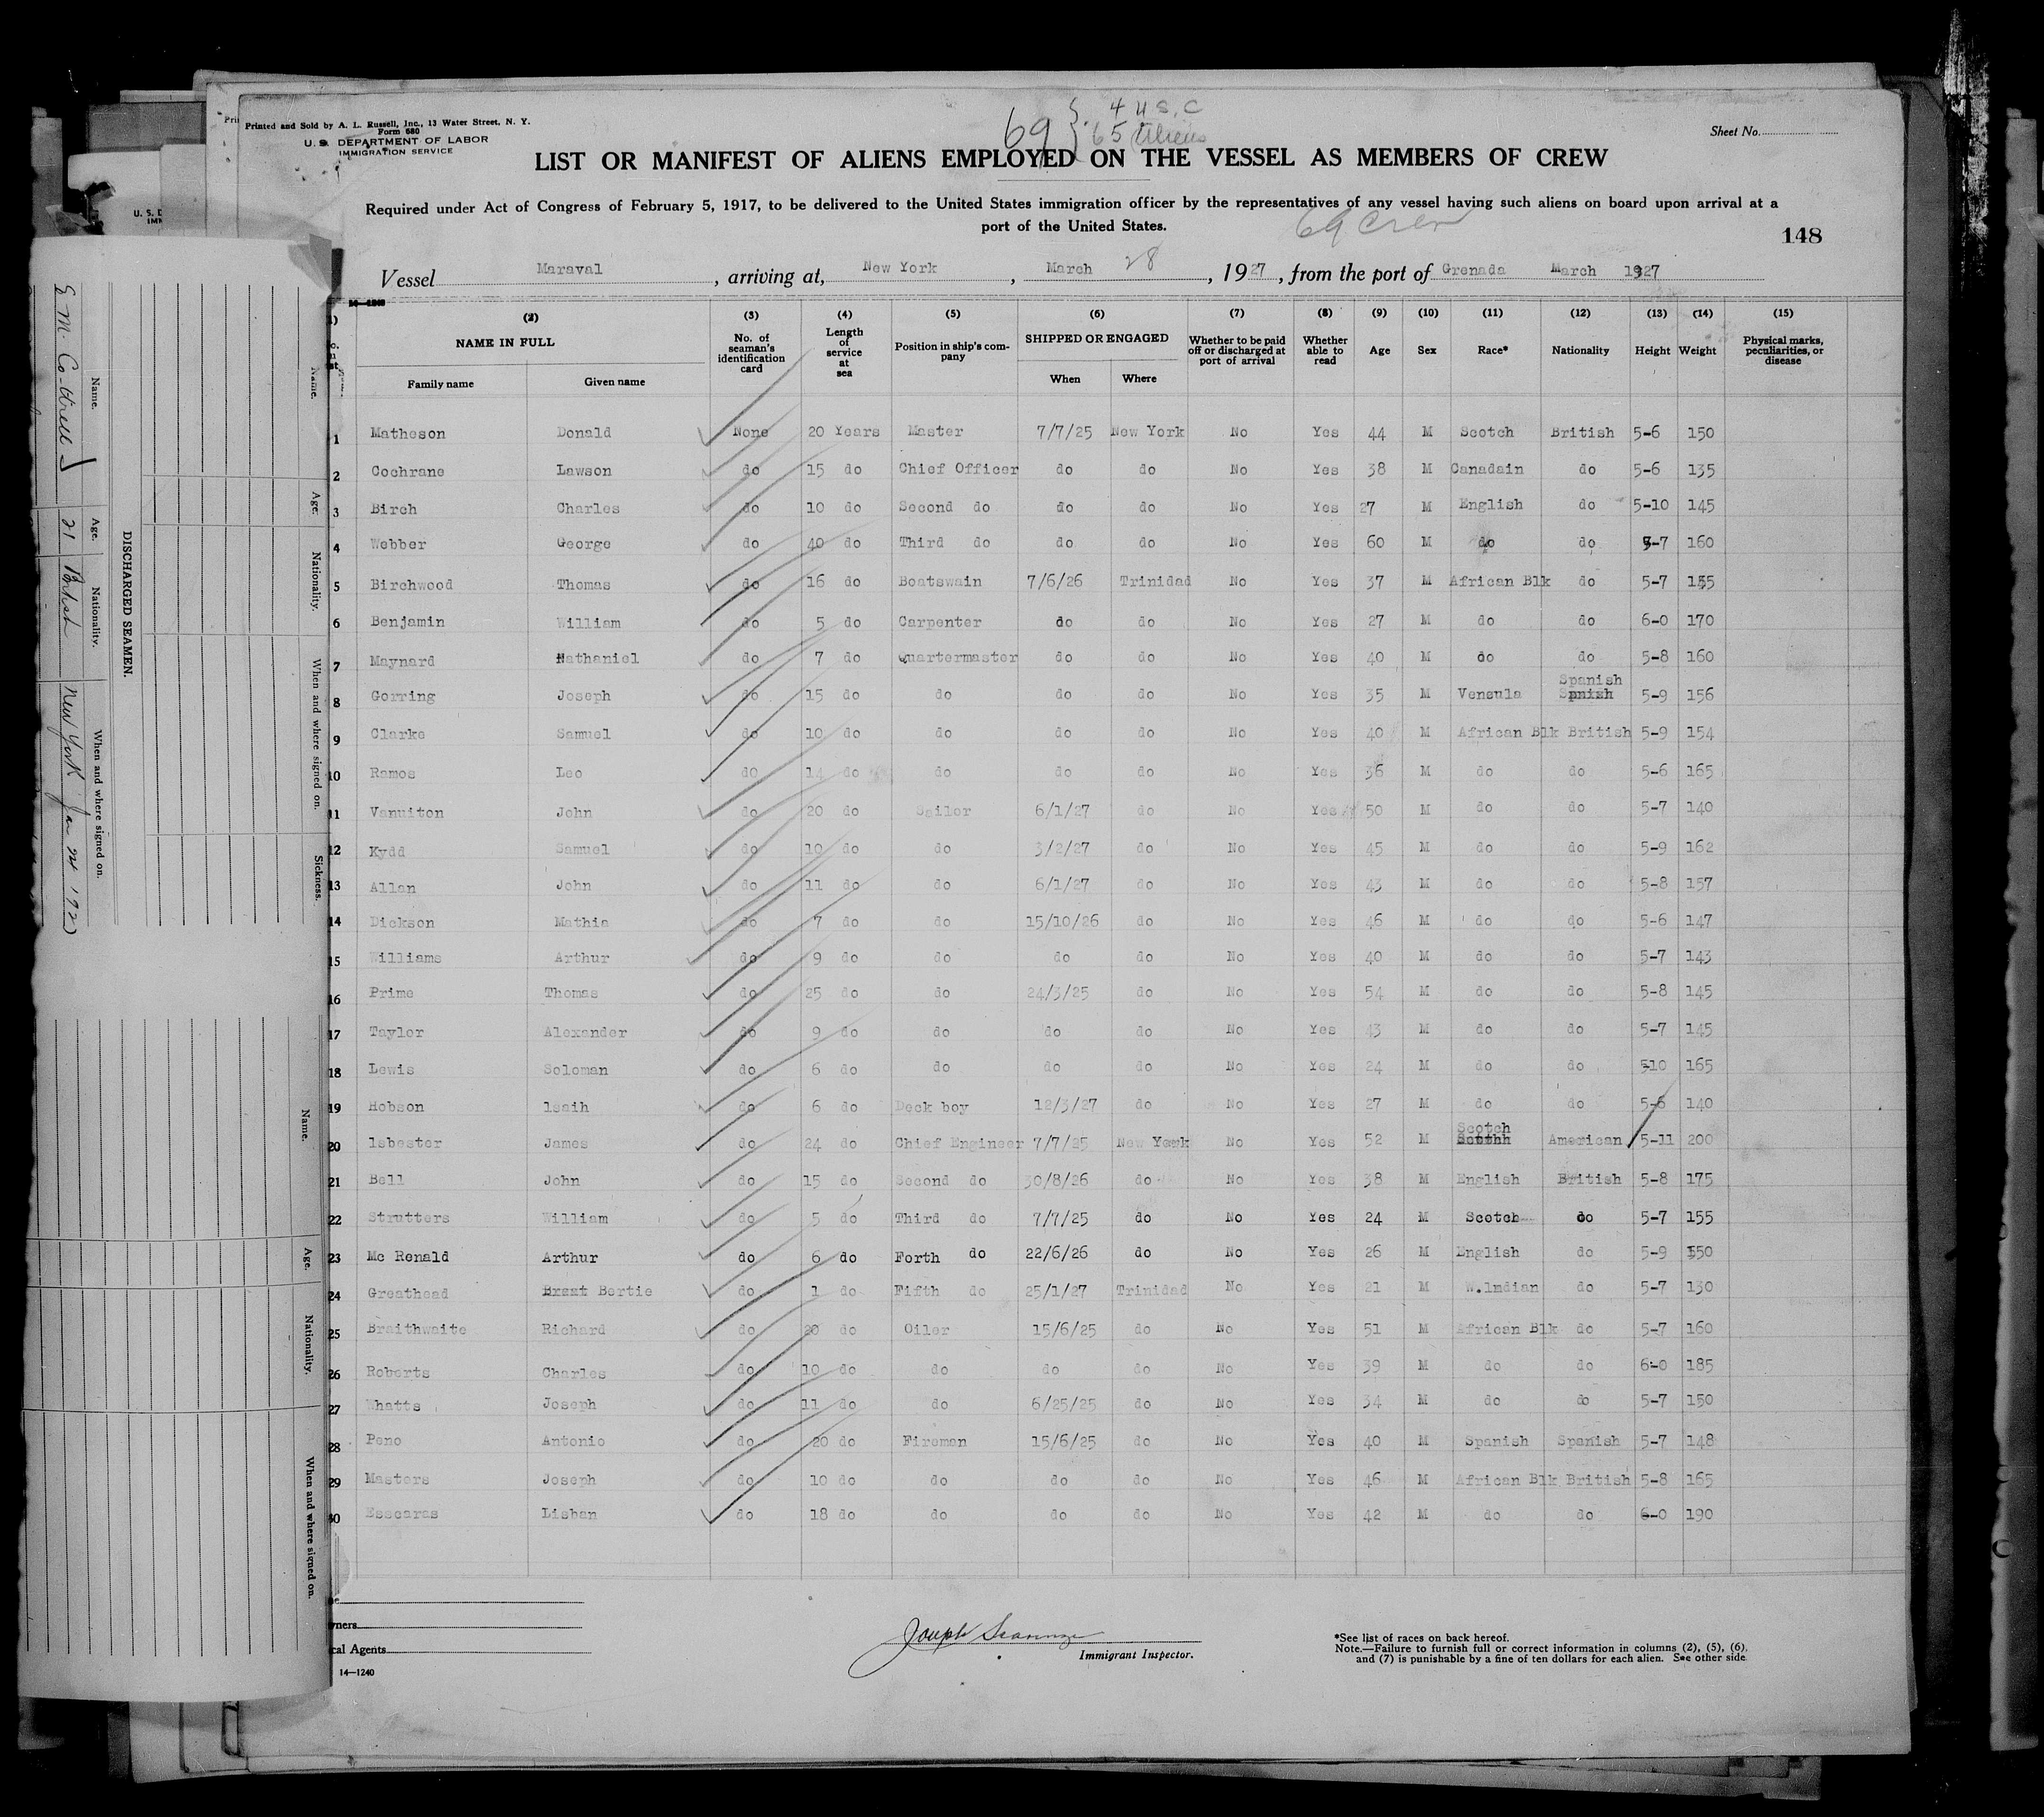 Printed and Sold by A. L. Russell, Inc., 13 Water Street, N. Y.
Form 680
U. S. DEPARTMENT OF LABOR
IMMIGRATION SERVICE
69 { 4 U.S.C
65 Aliens
Sheet No.
LIST OR MANIFEST OF ALIENS EMPLOYED ON THE VESSEL AS MEMBERS OF CREW
Required under Act of Congress of February 5, 1917, to be delivered to the United States immigration officer by the representatives of any vessel having such aliens on board upon arrival at a
port of the United States.
69 Crew
148
Vessel Maraval, arriving at, New York, March 28, 1927, from the port of Grenada March 1927
(2) (3) (4) (5) (6) (7) (8) (9) (10) (11) (12) (13) (14) (15)
NAME IN FULL Family name Given name No. of seaman's identification card Length of service at sea Position in ship's company SHIPPED OR ENGAGED When Where Whether to be paid off or discharged at port of arrival Whether able to read Age Sex Race* Nationality Height Weight Physical marks, peculiarities, or disease
1 Matheson Donald None 20 Years Master 7/7/25 New York No Yes 44 M Scotch British 5-6 150
2 Cochrane Lawson do 15 do Chief Officer do do No Yes 38 M Canadain do 5-6 135
3 Birch Charles do 10 do Second do do do No Yes 27 M English do 5-10 145
4 Webber George do 40 do Third do do do No Yes 60 M do do 5-7 160
5 Birchwood Thomas do 16 do Boatswain 7/6/26 Trinidad No Yes 37 M African Blk do 5-7 155
6 Benjamin William do 5 do Carpenter do do No Yes 27 M do do 6-0 170
7 Maynard Nathaniel do 7 do Quartermaster do do No Yes 40 M do do 5-8 160
8 Gorring Joseph do 15 do do do do No Yes 35 M Vensula Spanish 5-9 156
9 Clarke Samuel do 10 do do do do No Yes 40 M African Blk British 5-9 154
10 Ramos Leo do 14 do do do do No Yes 36 M do do 5-6 165
11 Vanuiton John do 20 do Sailor 6/1/27 do No Yes 50 M do do 5-7 140
12 Kydd Samuel do 10 do do 3/2/27 do No Yes 45 M do do 5-9 162
13 Allan John do 11 do do 6/1/27 do No Yes 43 M do do 5-8 157
14 Dickson Mathia do 7 do do 15/10/26 do No Yes 46 M do do 5-6 147
15 Williams Arthur do 9 do do do do No Yes 40 M do do 5-7 143
16 Prime Thomas do 25 do do 24/3/25 do No Yes 54 M do do 5-8 145
17 Taylor Alexander do 9 do do do do No Yes 43 M do do 5-7 145
18 Lewis Soloman do 6 do do do do No Yes 24 M do do 510 165
19 Hobson lsaih do 6 do Deck boy 12/3/27 do No Yes 27 M do do 5-6 140
20 lsbester James do 24 do Chief Engineer 7/7/25 New York No Yes 52 M Scotch American 5-11 200
21 Bell John do 15 do Second do 30/8/26 do No Yes 38 M English British 5-8 175
22 Strutters William do 5 do Third do 7/7/25 do No Yes 24 M Scotch do 5-7 155
23 Mc Renald Arthur do 6 do Forth do 22/6/26 do No Yes 26 M English do 5-9 150
24 Greathead Bertie do 1 do Fifth do 25/1/27 Trinidad No Yes 21 M W.lndian do 5-7 130
25 Braithwaite Richard do 20 do Oiler 15/6/25 do No Yes 51 M African Blk do 5-7 160
26 Roberts Charles do 10 do do do do No Yes 39 M do do 6-0 185
27 Whatts Joseph do 11 do do 6/25/25 do No Yes 34 M do do 5-7 150
28 Peno Antonio do 20 do Fireman 15/6/25 do No Yes 40 M Spanish Spanish 5-7 148
29 Masters Joseph do 10 do do do do No Yes 46 M African Blk British 5-8 165
30 Esscaras Lisban do 18 do do do do No Yes 42 M do do 6-0 190
Immigrant Inspector.
*See list of races on back hereof.
Note.—Failure to furnish full or correct information in columns (2), (5), (6),
and (7) is punishable by a fine of ten dollars for each alien. See other side
14—1240
DISCHARGED SEAMEN.
Name. Age. Nationality. When and where signed on.
Cottrell 21 British New York Jan 24 1927
Name. Age. Nationality. When and where signed on. Sickness.
Name. Age. Nationality. When and where signed on.